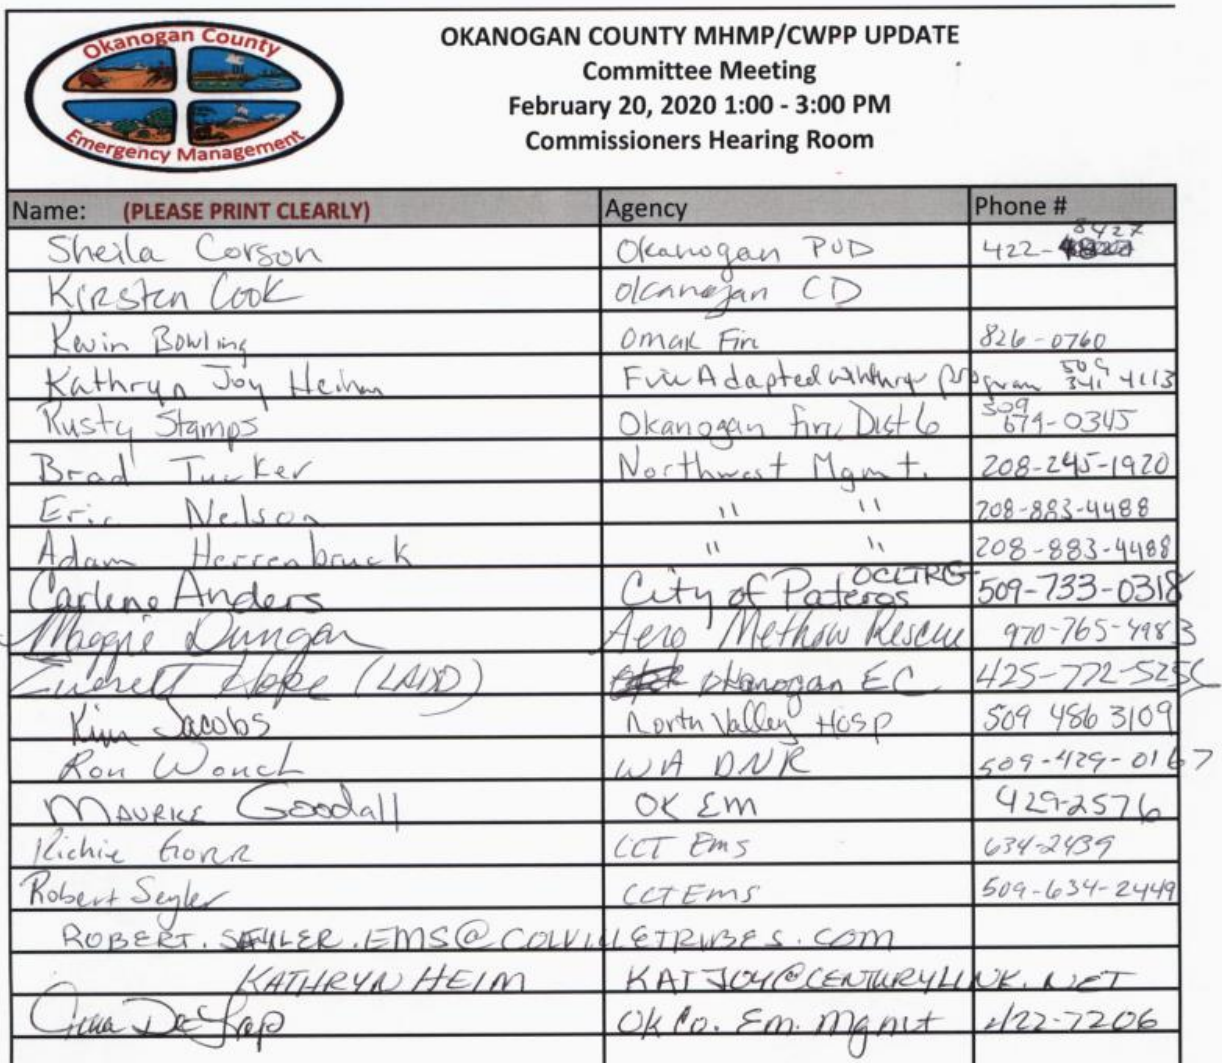 Okanogan County
Emergency Management
OKANOGAN COUNTY MHMP/CWPP UPDATE
Committee Meeting
February 20, 2020 1:00 - 3:00 PM
Commissioners Hearing Room
Name: (PLEASE PRINT CLEARLY) Agency Phone #
Sheila Corson Okanogan PUD 422- 8427
Kirsten Cook Okanogan CD
Kevin Bowling Omak Fire 826-0760
Kathryn Joy Heim Fire Adapted Winthrop program 509 341 4113
Rusty Stamps Okanogan Fire Dist 6 509 679-0345
Brad Tucker Northwest Mgmt. 208-245-1920
Eric Nelson " " 208-883-4488
Adam Herrenbruck " " 208-883-4488
Carlene Anders City of Pateros OCLTRG 509-733-0318
Maggie Dungan Aero Methow Rescue 970-765-4983
Everett (LADD) Okanogan EC
Kim Jacobs North Valley Hosp 509 486 3109
Ron Wonch WA DNR 509-429-0167
Maurice Goodall OK EM 429-2576
Richie Gorr CCT Ems 634-2439
Robert Seyler CCT Ems 509-634-2449
ROBERT.SEYLER.EMS@COLVILLETRIBES.COM
KATHRYN HEIM KATJOY@CENTURYLINK.NET
Ok Co. Em. Mgmt 422-7206